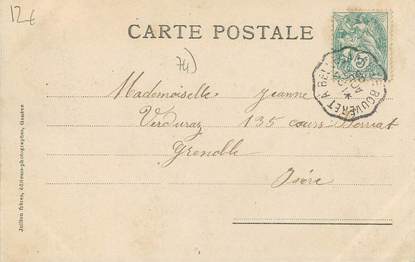 12€
CARTE POSTALE
74)
Mademoiselle Jeanne
Verduraz 135 cours Berriat
Grenoble
Isère
Jullien frères, éditeurs-photographes, Genève
LE BOUVERET A BELL